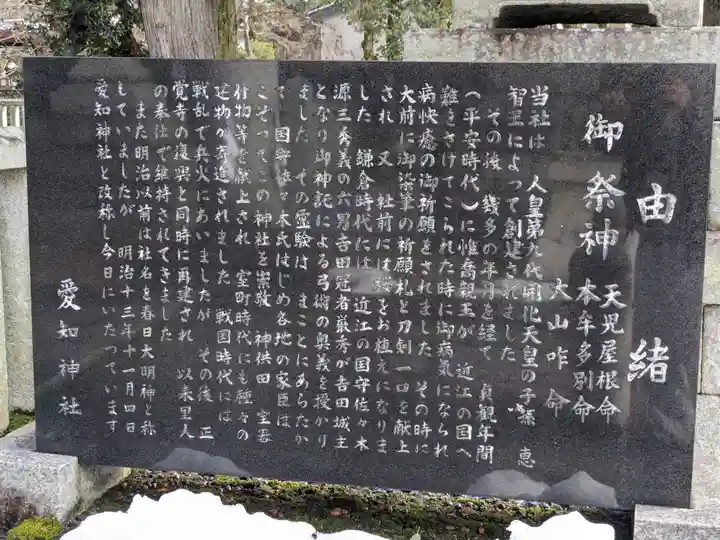 由緒
御祭神 天児屋根命
本牟多別命
大山咋命
当社は 人皇第九代開化天皇の子孫 恵
智里によって創建されました
その後 幾多の年月を経て 貞観年間
(平安時代)に惟喬親王が 近江の国へ
難をさけてこられた時に御病気になられ
病快癒の御祈願をされました その時に
大前に御染筆の祈願札と刀剣一口を献上
され 又 社前には桜をお植えになりま
した 鎌倉時代には 近江の国守佐々木
源三秀義の六男吉田冠者厳秀が吉田城主
となり御神託による弓術の奥義を授かり
ました その霊験は まことにあらたか
で 国守佐々木氏はじめ各地の家臣は
こぞってこの神社を崇敬 神供田 宝器
什物等を献上され 室町時代にも種々の
建物が寄進されました 戦国時代には
戦乱で兵火にあいましたが その後 正
覚寺の復興と同時に再建され 以来里人
の奉仕で維持されてきました
また明治以前は社名を春日大明神と称
していましたが 明治十三年十一月四日
愛知神社と改称し今日にいたっています
愛知神社